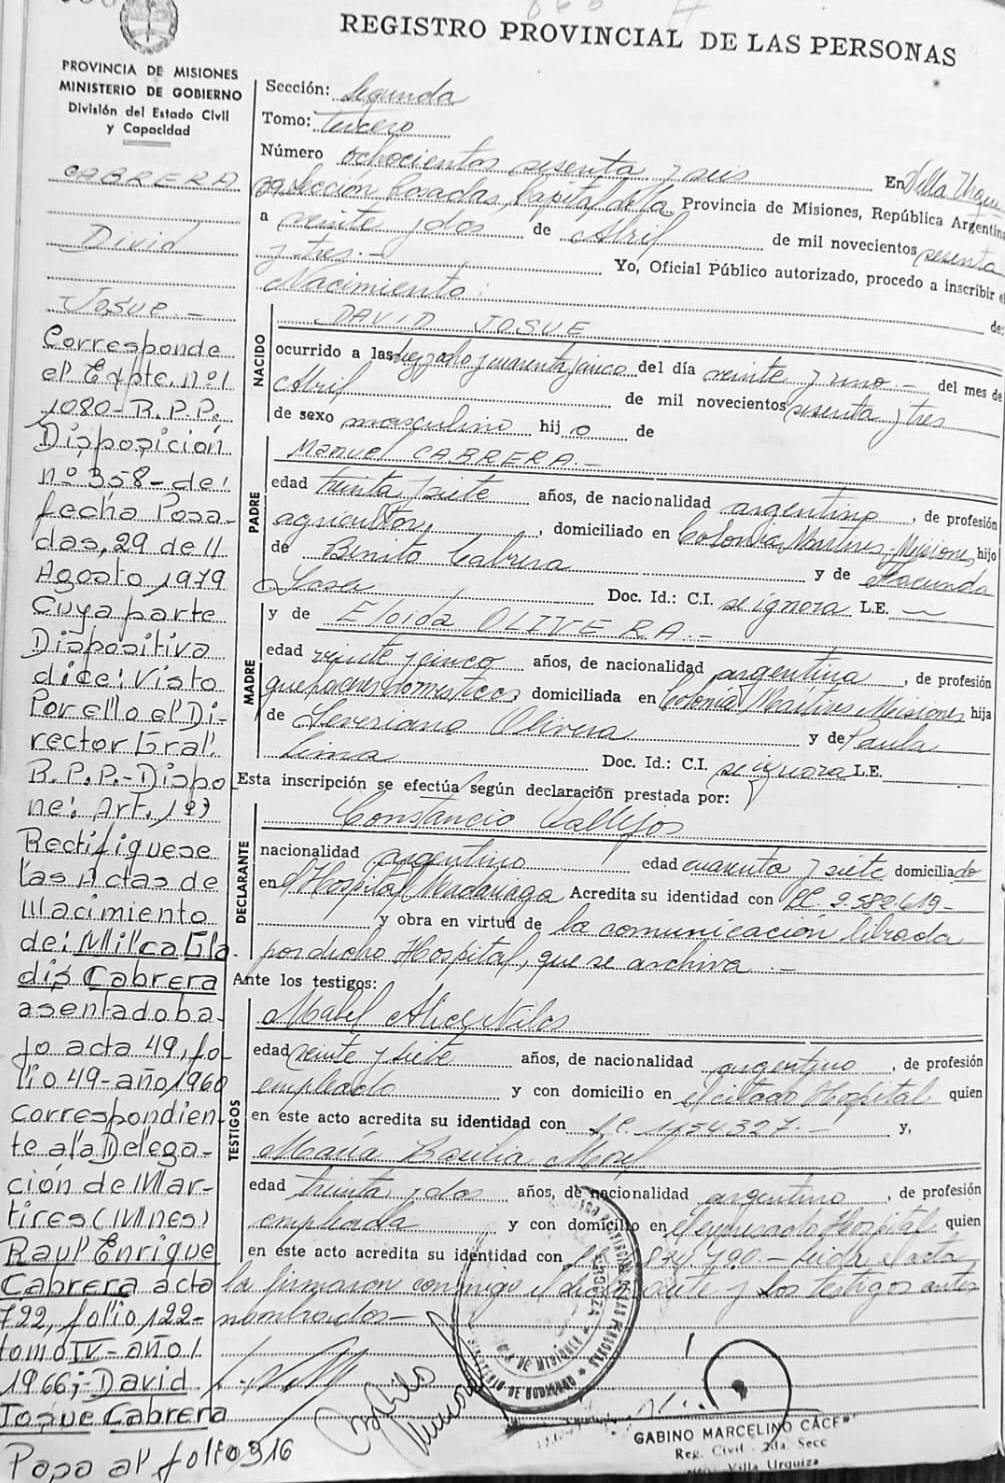 REGISTRO PROVINCIAL DE LAS PERSONAS
PROVINCIA DE MISIONES
MINISTERIO DE GOBIERNO
División del Estado Civil
y Capacidad
CABRERA
David
Josue.-
Corresponde
el Expte. nº1
1080-R.P.P.
Disposición
nº 358-de
fecha Posa-
das, 29 de
Agosto 1979
Cuya parte
Dispositiva
dice: Visto
Por ello el Di-
rector Gral.
R.P.P.-Dispo
ne: Art. 1º)
Rectifiquese
las Actas de
Nacimiento
de: Milca Gla-
dis Cabrera
asentado ba-
jo acta 49, fo-
lio 49-año 1960
correspondien-
te a la Delega-
ción de Mar-
tires (Mnes)
Raul Enrique
Cabrera acta
722, folio 122-
tomo IV-año
1966;-David
Josue Cabrera
Pasa al folio 916
Sección: Segunda
Tomo: Tercero
Número ochocientos sesenta y seis En Villa Urqui
Sección Posadas, Capital de la Provincia de Misiones, República Argentina
a veinte y dos de Abril de mil novecientos sesenta
y tres.- Yo, Oficial Público autorizado, procedo a inscribir el
Nacimiento: de:
NACIDO
DAVID JOSUE
ocurrido a las diez y ocho y cuarenta y cinco del día veinte y uno.- del mes de
Abril de mil novecientos sesenta y tres
de sexo masculino hijo de
PADRE
Manuel CABRERA.-
edad treinta y siete años, de nacionalidad argentino, de profesión
agricultor, domiciliado en Colonia Martires, Misiones, hijo
de Benito Cabrera y de Facunda
Sosa Doc. Id.: C.I. se ignora L.E. —
MADRE
y de Eloida OLIVERA.-
edad veinte y cinco años, de nacionalidad argentina, de profesión
quehaceres domesticos domiciliada en Colonia Mártires Misiones hija
de Severiano Olivera y de Paula
Lima Doc. Id.: C.I. se ignora L.E.
Esta inscripción se efectúa según declaración prestada por:
DECLARANTE
Constancio Vallejos
nacionalidad argentino edad cuarenta y siete domiciliado
en el Hospital Madariaga Acredita su identidad con
y obra en virtud de la comunicación librada
por dicho Hospital, que se archiva.-
Ante los testigos:
TESTIGOS
Mabel Alicia
edad veinte y siete años, de nacionalidad argentino, de profesión
empleado y con domicilio en el citado Hospital quien
en este acto acredita su identidad con y,
María Basilia
edad treinta y dos años, de nacionalidad argentino, de profesión
empleada y con domicilio en el expresado Hospital quien
en este acto acredita su identidad con leida el acta
la firmaron conmigo el declarante y los testigos antes
nombrados-
GABINO MARCELINO CACE
Reg. Civil - 2da. Secc
Villa Urquiza